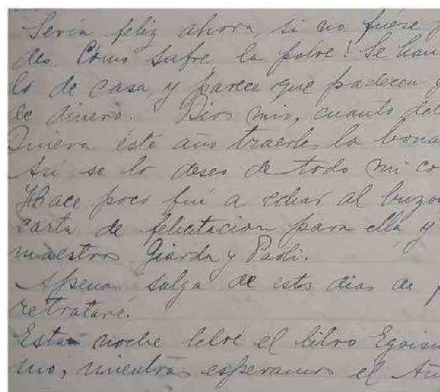 Sería feliz ahora, si no fuese
des Cómo sufre la pobre! Se han
lo de casa, y parece que padecen
de dinero. Dios mío, cuanto de
Quiera éste año traerles la bona
Así se lo deseo de todo mi co
Hace poco fuí a echar al buzon
carta de felicitacion para ella y
maestros Giarda y Paoli.
Apenas salga de estos dias de
retrataré.
Esta noche leeré el libro Egois
mo, mientras esperamos el Au